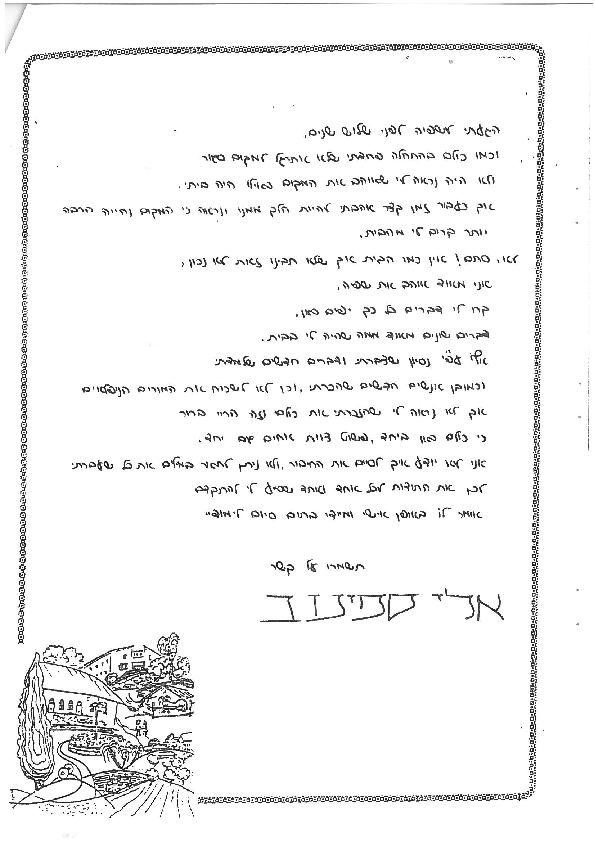 הגעתי לשפיה לפני שלוש שנים,
וכמו כולם בהתחלה פחדתי שלא אתרגל למקום סגור
ולא היה נראה לי שאוהב את המקום כאילו היה ביתי.
אך כעבור זמן קצר אהבתי להיות חלק ממנו ונראה כי המקום נהייה הרבה
יותר קרוב לי מהבית.
לא, סתם! אין כמו הבית אך שלא תבינו זאת לא נכון,
אני מאוד אוהב את שפיה,
קרו לי דברים כל כך יפים כאן,
דברים שונים מאוד ממה שהיה לי בבית.
אולי עפ"י נסיון שצברתי ודברים חדשים שלמדתי
וכמובן אנשים חדשים שהכרתי, וכן לא לשכוח את המורים הנפלאים
אך לא נראה לי שהזכרתי את כולם וזה הרי ברור
כי כולם כאן ביחד, פשוט צוות אוחים עם יחד.
אני לא יודע איך לסיים את החיבור, ולא ניתן לתאר במילים את כל שעברתי
לכן את התודות לכל אחד ואחד שסייע לי להתקדם
אומר לו באופן אישי ומיידי בתום סיום לימודיי
תשמרו על קשר
אלי סמינוב